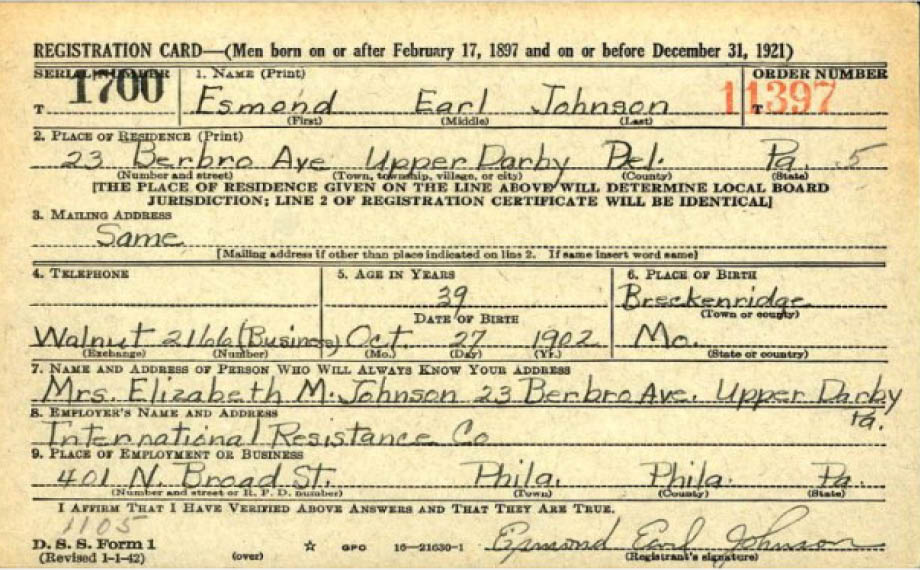 REGISTRATION CARD—(Men born on or after February 17, 1897 and on or before December 31, 1921)
SERIAL NUMBER 1. NAME (Print) ORDER NUMBER
T 1700 Esmond Earl Johnson T 11397
(First) (Middle) (Last)
2. PLACE OF RESIDENCE (Print)
23 Berbro Ave Upper Darby Del. Pa. 5
(Number and street) (Town, township, village, or city) (County) (State)
[THE PLACE OF RESIDENCE GIVEN ON THE LINE ABOVE WILL DETERMINE LOCAL BOARD
JURISDICTION; LINE 2 OF REGISTRATION CERTIFICATE WILL BE IDENTICAL]
3. MAILING ADDRESS
Same
[Mailing address if other than place indicated on line 2. If same insert word same]
4. TELEPHONE 5. AGE IN YEARS 6. PLACE OF BIRTH
39 Breckenridge
DATE OF BIRTH (Town or county)
Walnut 2166 (Business) Oct. 27 1902 Mo.
(Exchange) (Number) (Mo.) (Day) (Yr.) (State or country)
7. NAME AND ADDRESS OF PERSON WHO WILL ALWAYS KNOW YOUR ADDRESS
Mrs. Elizabeth M. Johnson 23 Berbro Ave. Upper Darby
Pa.
8. EMPLOYER'S NAME AND ADDRESS
International Resistance Co
9. PLACE OF EMPLOYMENT OR BUSINESS
401 N. Broad St. Phila. Phila. Pa.
(Number and street or R. F. D. number) (Town) (County) (State)
I AFFIRM THAT I HAVE VERIFIED ABOVE ANSWERS AND THAT THEY ARE TRUE.
1105
D. S. S. Form 1 Esmond Earl Johnson
(Revised 1-1-42) (over) ☆ GPO 16—21630-1 (Registrant's signature)